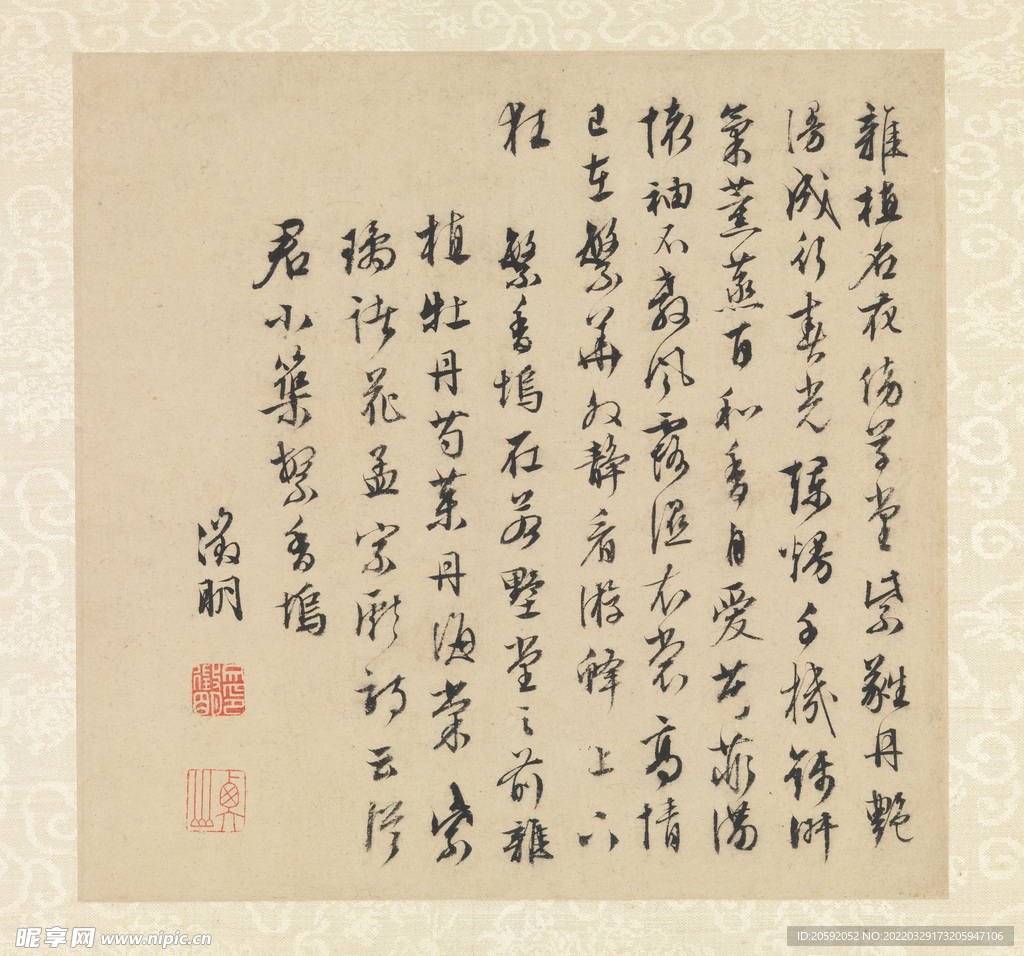 雜植名花傍草堂紫蕤丹艷
漫成行春光爛熳千機錦淑
氣薰蒸百和香自愛芳菲滿
懷袖不教風露濕衣裳高情
已在繁華外靜看游蜂上下
狂 繁香塢在若墅堂之前雜
植牡丹芍藥丹海棠紫
璚諸花孟宗獻詩云從
君小築繁香塢
徵明
徵明之印
昵享网 www.nipic.cn
ID:20592052 NO:20220329173205947106